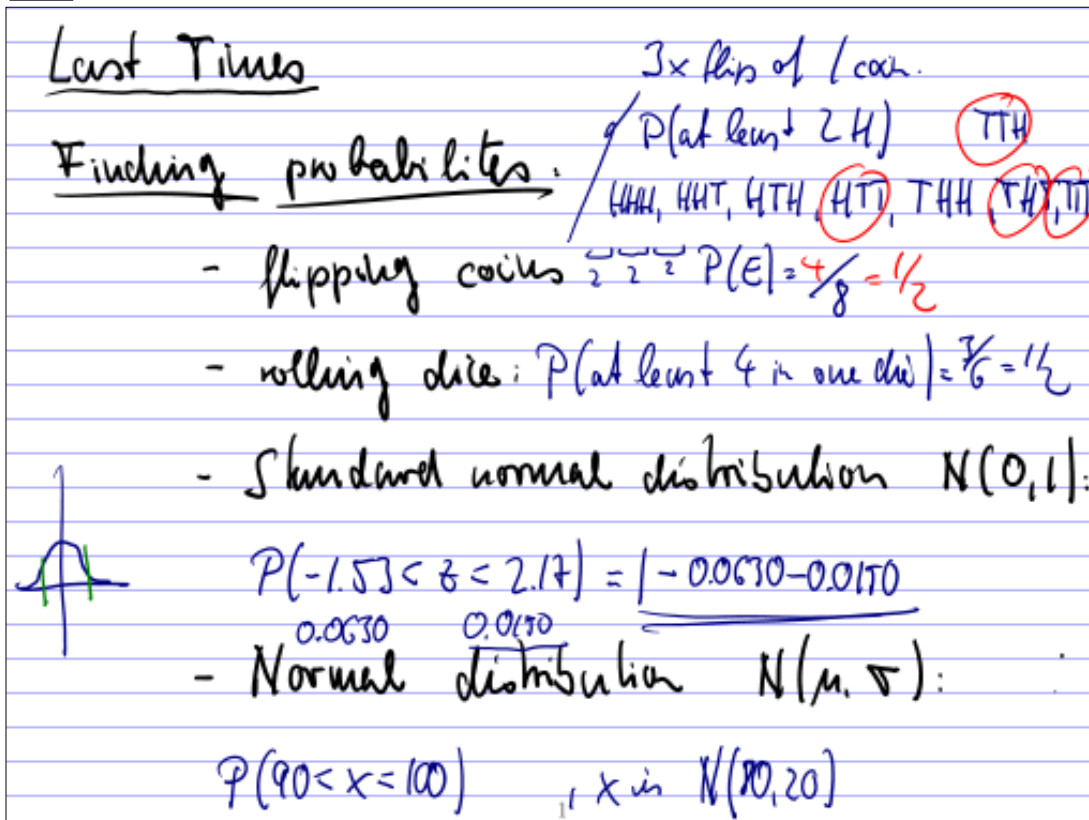 Last Times
3x flip of 1 coin.
P(at least 2H) TTH
Finding probabilites.
HHH, HHT, HTH, HTT, THH, THT, TTT
- flipping coins 2 2 2 P(E) = 4/8 = 1/2
- rolling dice: P(at least 4 in one die) = 3/6 = 1/2
- Standard normal distribution N(0,1):
P(-1.53 < z < 2.17) = 1 - 0.0630 - 0.0150
0.0630 0.0150
- Normal distribution N(μ, σ):
P(90 < x = 100) , x in N(80,20)
1